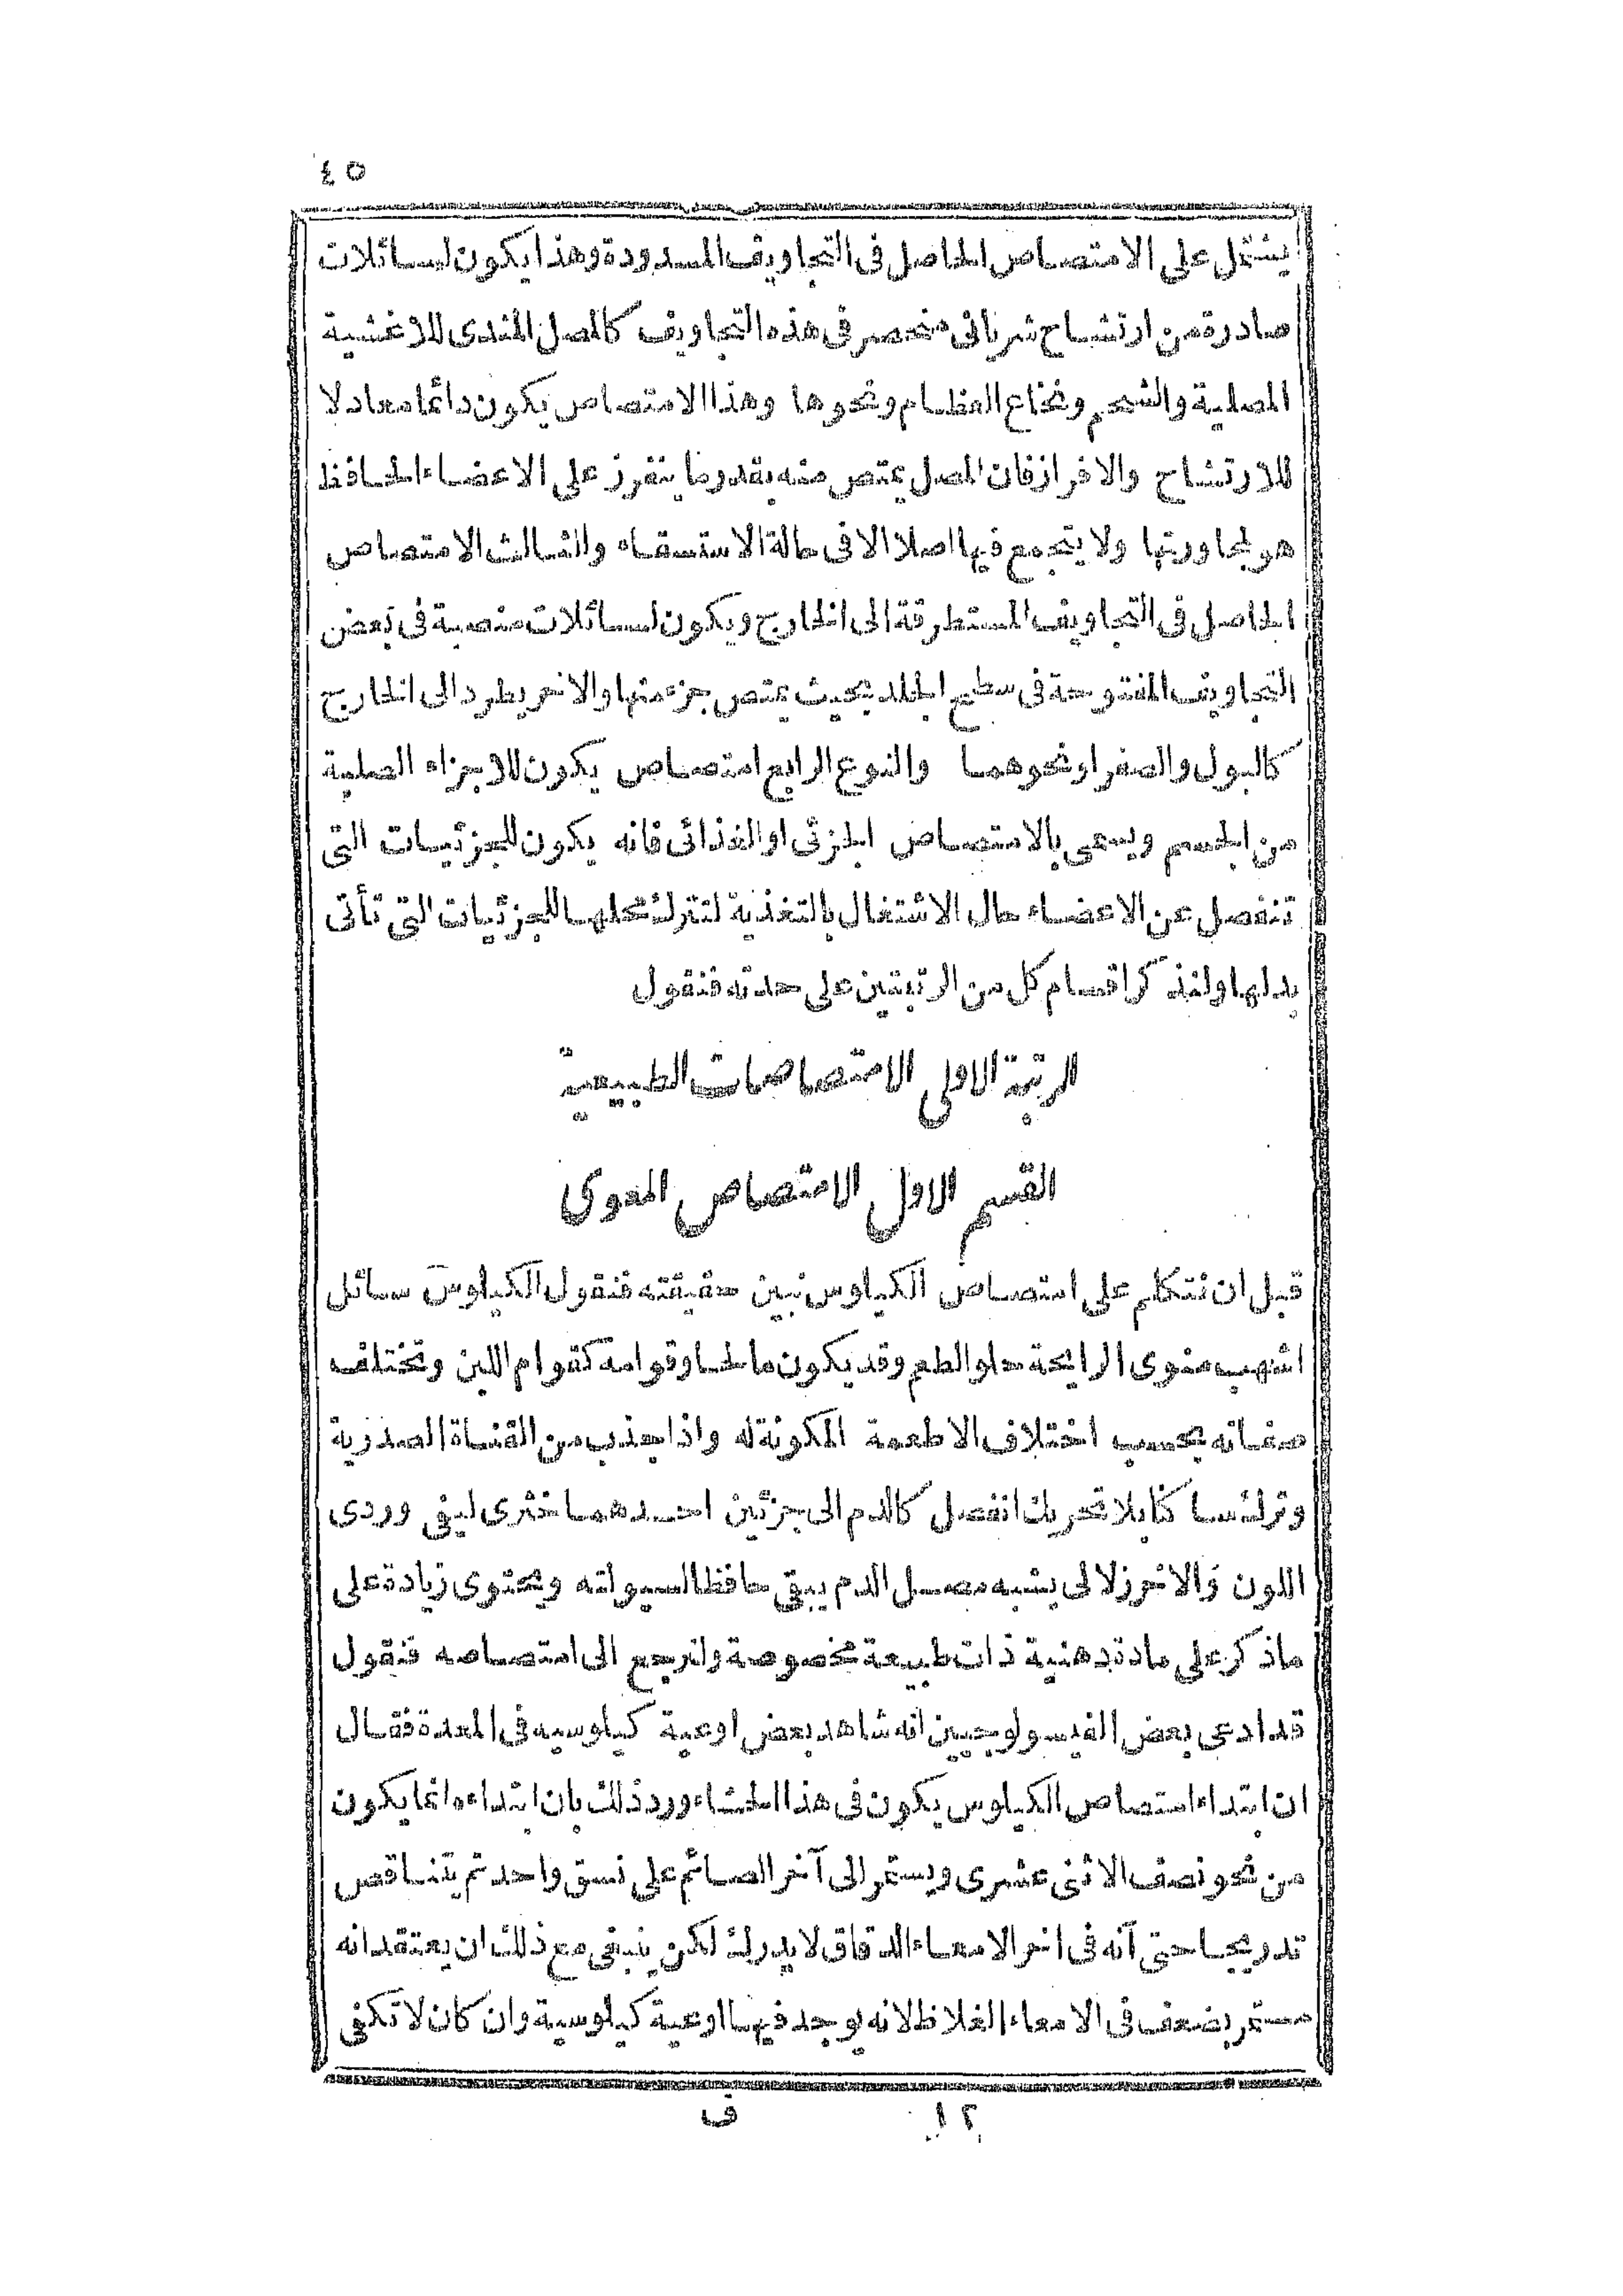 ٤٥
يشتمل على الامتصاص الحاصل فى التجاويف المسدودة وهذا يكون لسائلات
صادرة من ارتشاح شريانى منحصر فى هذه التجاويف كالمصل المندى للاغشية
المصلية والشحم ونخاع العظام ونحوها وهذا الامتصاص يكون دائما معادلا
للارتشاح والافراز فان المصل يمتص منه بقدر ما ينفرز على الاعضاء الحافظ
هو لمجاورتها ولا يتجمع فيها اصلا الا فى حالة الاستسقاء والثالث الامتصاص
الحاصل فى التجاويف المستطرقة الى الخارج ويكون لسائلات منصبة فى بعض
التجاويف المفتوحة فى سطح الجلد بحيث يمتص جزء منها والاخر يطرد الى الخارج
كالبول والصفرا ونحوهما والنوع الرابع امتصاص يكون للاجزاء الصلبة
من الجسم ويسمى بالامتصاص الجزئى او الغذائى فانه يكون للجزئيات التى
تنفصل عن الاعضاء حال الاشتغال بالتغذية لتترك محلها للجزئيات التى تأتى
بدلها ولنذكر اقسام كل من الرتبتين على حدته فنقول
الرتبة الاولى الامتصاصات الطبيعية
القسم الاول الامتصاص المعوى
قبل ان نتكلم على امتصاص الكيلوس نبين حقيقته فنقول الكيلوس سائل
اشهب منوى الرايحة حلو الطعم وقد يكون مالحا وقوامه كقوام اللبن وتختلف
صفاته بحسب اختلاف الاطعمة المكونة له واذا جذب من القناة الصدرية
وترك ساكنا بلا تحريك انفصل كالدم الى جزئين احدهما خثرى ليفى وردى
اللون والاخر زلالى يشبه مصل الدم يبقى حافظا لسيولته ويحتوى زيادة على
ماذكر على مادة دهنية ذات طبيعة مخصوصة ولنرجع الى امتصاصه فنقول
قد ادعى بعض الفيسولوجيين انه شاهد بعض اوعية كيلوسيه فى المعدة فقال
ان ابتداء امتصاص الكيلوس يكون فى هذا الحشاء ورد ذلك بان ابتداءه انما يكون
من نحو نصف الاثنى عشرى ويستمر الى آخر الصائم على نسق واحد ثم يتناقص
تدريجا حتى آنه فى اخر الامعاء الدقاق لا يدرك لكن ينبغى مع ذلك ان يعتقد انه
مستمر بضعف فى الامعاء الغلاظ لانه يوجد فيها اوعية كيلوسية وان كان لا تكفى
١٢ ف